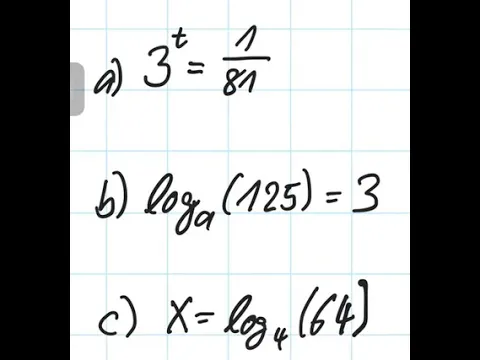 a) 3^t = 1/81
b) log_a (125) = 3
c) x = log_4 (64)